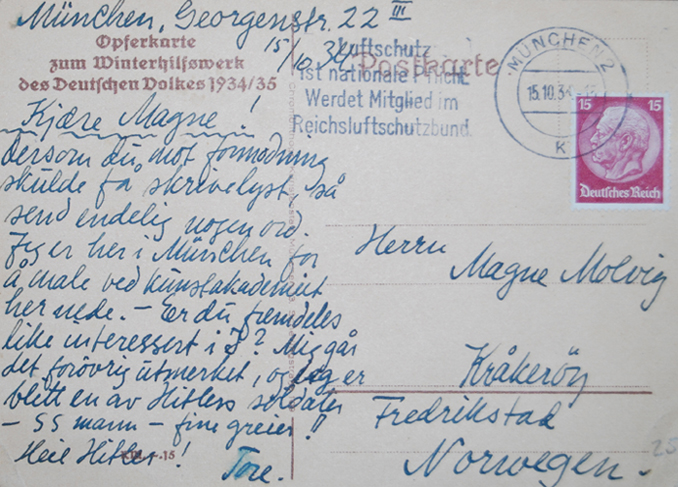 München, Georgenstr. 22 III
15/10 34
Opferkarte
zum Winterhilfswerk
des Deutschen Volkes 1934/35
Postkarte
Luftschutz
ist nationale Pflicht
Werdet Mitglied im
Reichsluftschutzbund.
MÜNCHEN 2
15.10.34.-15
K
15 15
Deutsches Reich
Kjære Magne!
dersom du, mot formodning
skulde få skrivelyst, så
send endelig nogen ord.
Jeg er her i München for
å male ved kunstakademiet
her nede. – Er du fremdeles
like interessert i J? Mig går
det forøvrig utmerket, og jeg er
blitt en av Hitlers soldater
– SS mann – fine greier!!
Heil Hitler!
Tore.
Herrn
Magne Molvig
Kråkeröy
Fredrikstad
Norwegen.
25